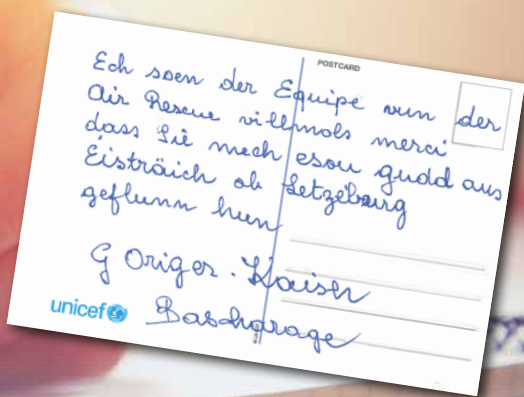 POSTCARD
Ech soen der Equipe vun der
Air Rescue villmols merci
dass Sie mech esou gudd aus
Eisträich ob Letzëburg
geflunn hun
G Origer. Kaiser
Bascharage
unicef